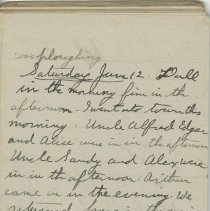 was ploughing
Saturday June 12. Dull
in the morning fine in the
afternoon. I went into town this
morning. Uncle Alfred Edgar
and Alice were in in the afternoon
Uncle Sandy and Alex were
in in the afternoon. Arthur
came in in the evening. We